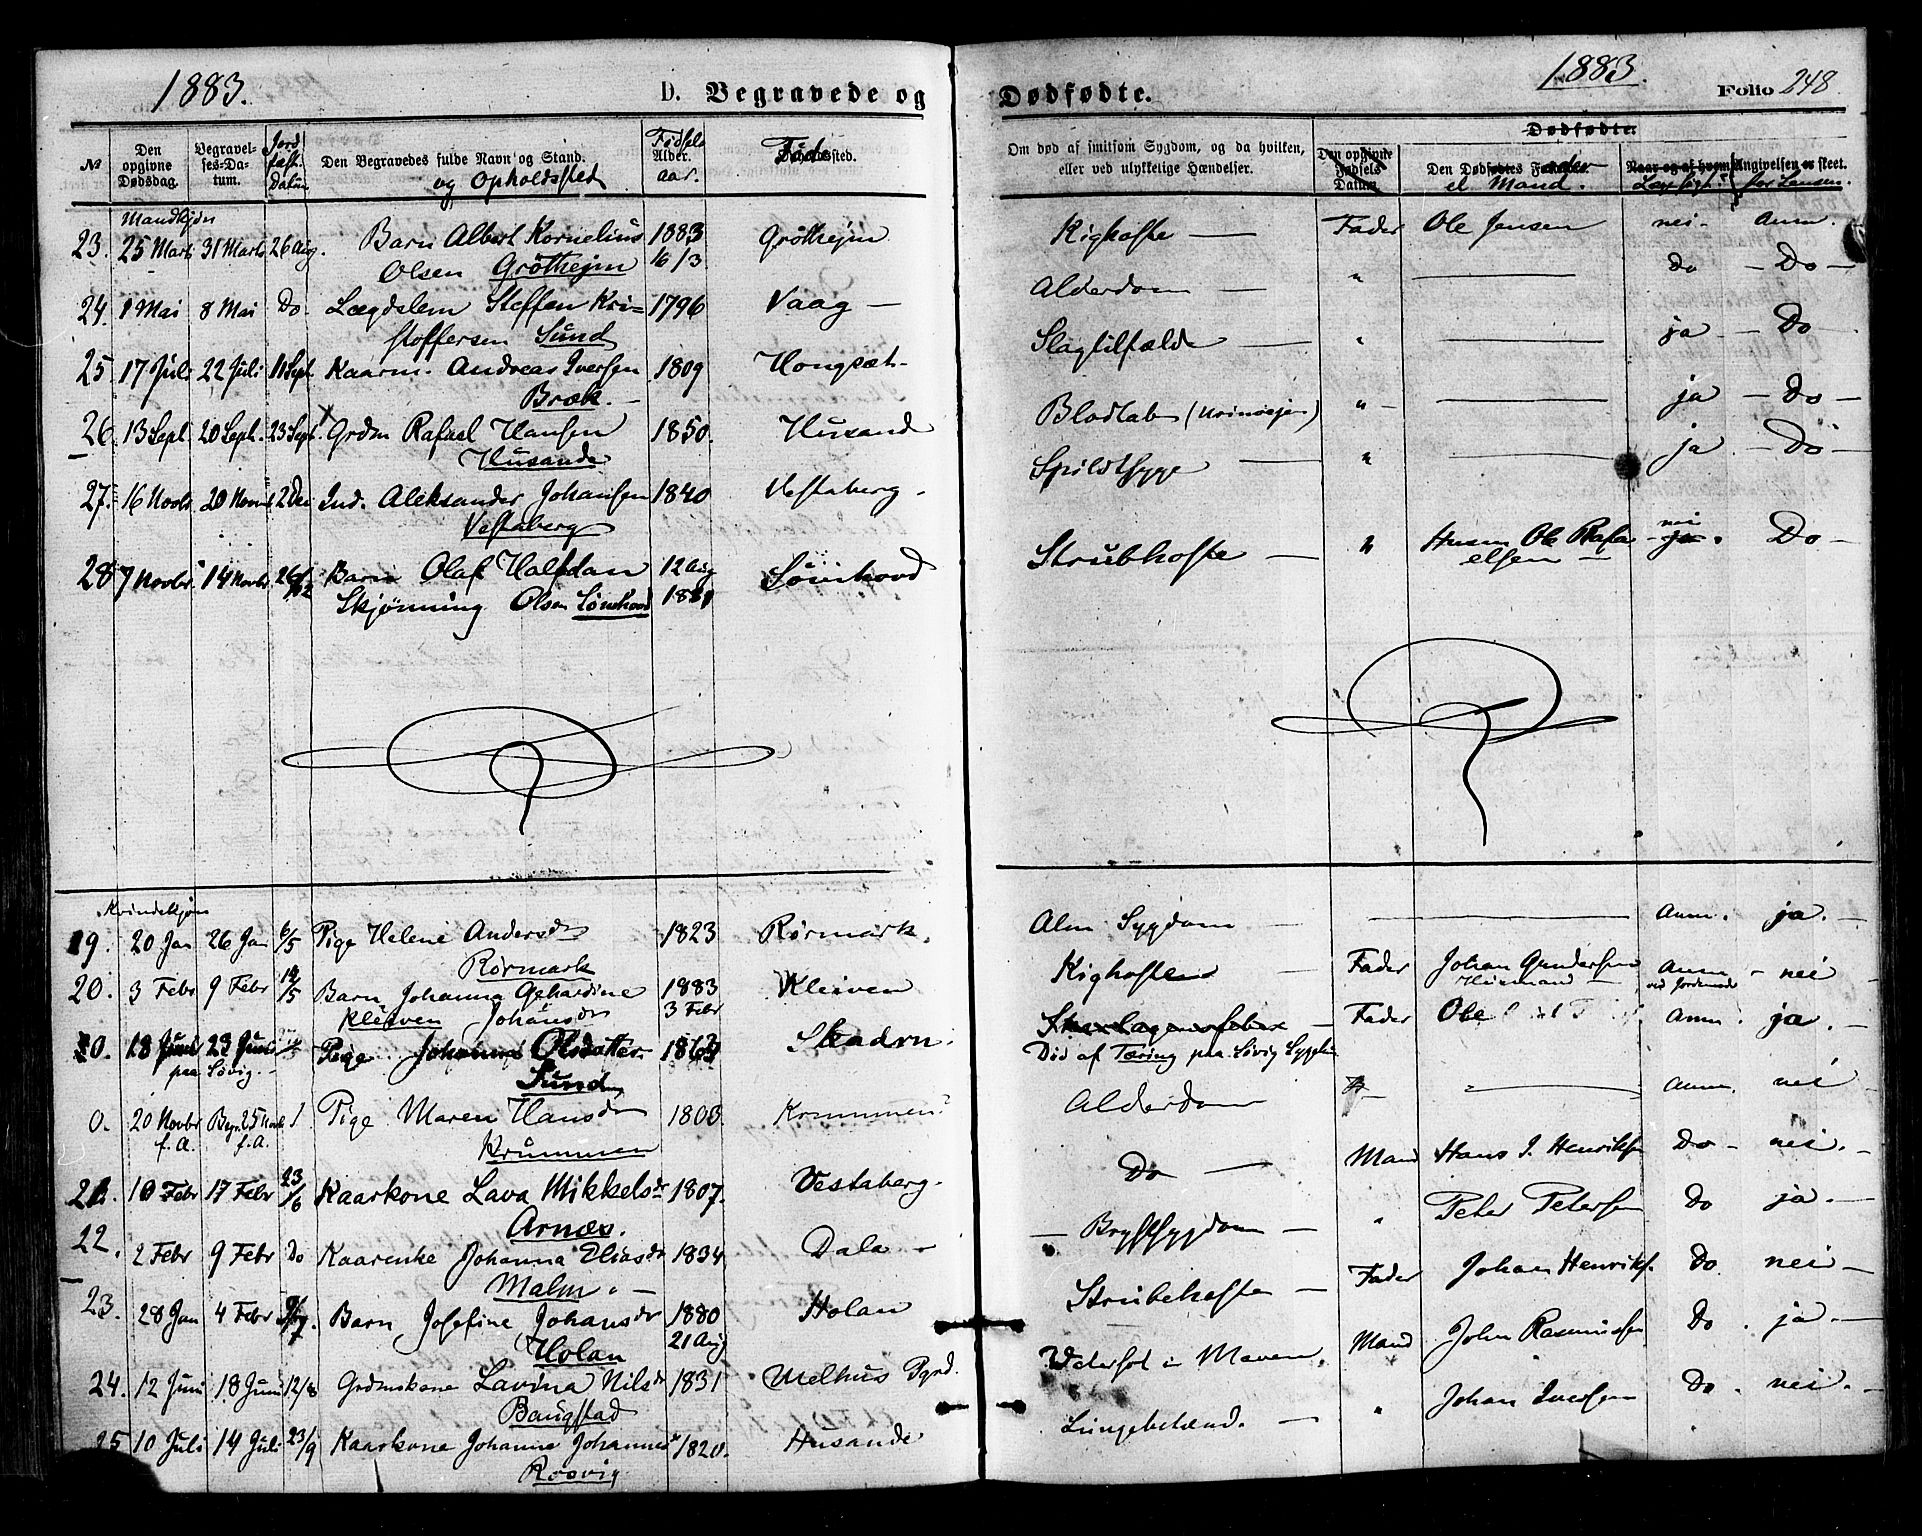 1883.
D. Begravede og
№
Den opgivne Dødsdag.
Begravelses-Datum.
Jordfæst. Datum
Den Begravedes fulde Navn og Stand.
og Opholdssted
Fødsels Alder. aar.
Føde sted.
Mandkjøn
23. 25 Marts 31 Marts 26 Aug. Barn Albert Kornelius 1883 Grøtheim
Olsen Grøtheim 16/3
24. 1 Mai 8 Mai Do Lægdslem Steffen Kri= 1796 Vaag —
stoffersen Sund
25 17 Juli 22 Juli 11 Sept Kaarm. Andreas Iversen 1809 Hongsæt
Bræk. —
26. 13 Sept 20 Sept. 23 Sept Grdm Rafael Hansen 1850. Husand
Husande
27. 16 Novbr 20 Novbr 2 Dec Ind. Aleksander Johansen 1840 Vestaberg.
Vestaberg
28 7 Novbr. 14 Novbr. 26/12 Barn Olaf Halfdan 12 Aug Sømhovd
Skjønning Olsen Sømhovd 1881
Kvindekjøn
19. 20 Jan 26 Jan 6/5 Pige Helene Andersdr 1823 Rørmark.
Rørmark
20. 3 Febr 9 Febr 14/5 Barn Johanna Gehardine 1883 Kleiven
Kleiven Johansdr 3 Febr
0. 18 Juni 23 Juni Pige Johanna Olsdatter 1863 Skadrn.
paa Løvig. — Sund
0. 20 Novbr Begr. 25 Novb Pige Maren Hansdr 1803. Krummen
f. A. f. A. Krummen
21. 10 Febr 17 Febr 23/6 Kaarkone Lava Mikkelsdr 1807. Vestaberg.
Arnæs.
22. 2 Febr 9 Febr Do Kaarenke Johanna Eliasdr 1834 Dala —
Malm. —
23. 28 Jan 4 Febr Barn Josefine Johansdr 1880 Holan
Holan 21 Aug
24. 12 Juni 18 Juni 12/8 Grdmskone Lavina Nilsdr 1831 Melhus Pgrd.
Baugstad
25 10 Juli 14 Juli 23/9 Kaarkone Johanna Johannesdr 1820. Husande
Rosvig
Dødfødte.
1883.
Folio 248.
Om død af smitsom Sygdom, og da hvilken, eller ved ulykkelige Hændelser.
Den opgivne Fødsels Datum.
Dødfødte.
Den Dødfødtes Fader
el Mand.
Naar og af hvem Angivelsen er skeet.
Kighoste — Fader Ole Jensen nei. Anm.
Alderdom — " — Do — Do —
Slagtilfælde — " — ja — Do —
Blodtab (Urinveien) " — ja — Do —
Spildtsyge — " — ja. Do —
Strubhoste — " Husm Ole Rafa nei Do —
elsen — ja.
Alm Sygdom — Anm. ja. —
Kighosten — Fader Johan Gundersen Anm — nei —
Husmand ved Jordemoder
Skarlagensfeber — Fader Ole Anm. ja. —
Død af Tæring paa Løvig Sygehus
Alderdom — Anm. nei
Do — Mand Hans J. Henriksen Do — nei. —
— Brystsygdom — " Peter Petersen Do ja. —
Strubehoste — Fader Johan Henriks. Do. nei —
Vatersot i Maven. Mand John Rasmussen Do. ja. —
Lungebetænd. — " Johan Iversen Do. nei. —